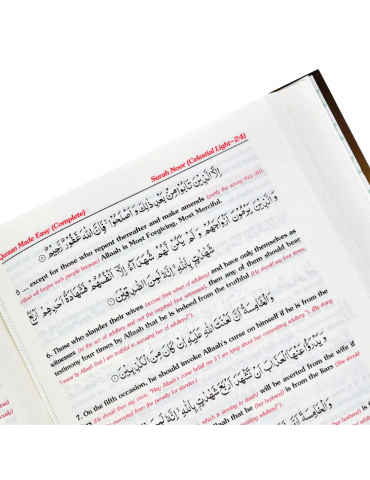 Quran Made Easy (Complete)
Surah Noor (Celestial Light-24)
إِلَّا الَّذِينَ تَابُوا مِنْ بَعْدِ ذَٰلِكَ وَأَصْلَحُوا فَإِنَّ اللَّهَ غَفُورٌ رَحِيمٌ
5 .... except for those who repent thereafter and make amends (rectify the wrong they did).
(Allaah will forgive such people because) Allaah is Most Forgiving, Most Merciful.
وَالَّذِينَ يَرْمُونَ أَزْوَاجَهُمْ وَلَمْ يَكُنْ لَهُمْ شُهَدَاءُ إِلَّا أَنْفُسُهُمْ فَشَهَادَةُ أَحَدِهِمْ أَرْبَعُ
شَهَادَاتٍ بِاللَّهِ إِنَّهُ لَمِنَ الصَّادِقِينَ
6. Those who slander their wives (accuse their wives of adultery) and have only themselves as
witnesses (to the act of adultery and not the required four witnesses), then any of them should bear
testimony four times by Allaah that he is indeed from the truthful (He should say four times,
"I swear by Allaah that I am truthful in accusing her of adultery").
وَالْخَامِسَةُ أَنَّ لَعْنَتَ اللَّهِ عَلَيْهِ إِنْ كَانَ مِنَ الْكَاذِبِينَ
7. On the fifth occasion, he should invoke Allaah's curse on himself if he is from the
(He should then say once, "May Allaah's curse befall me if I am lying about her committing adultery"). (By doing
be exempted from the penalty for slander).
وَيَدْرَأُ عَنْهَا الْعَذَابَ أَنْ تَشْهَدَ أَرْبَعَ شَهَادَاتٍ بِاللَّهِ إِنَّهُ
which is stoning to death) will be averted from the wife if
that he (her husband) is from the liars (She should
adultery").
وَالْخَامِسَةَ